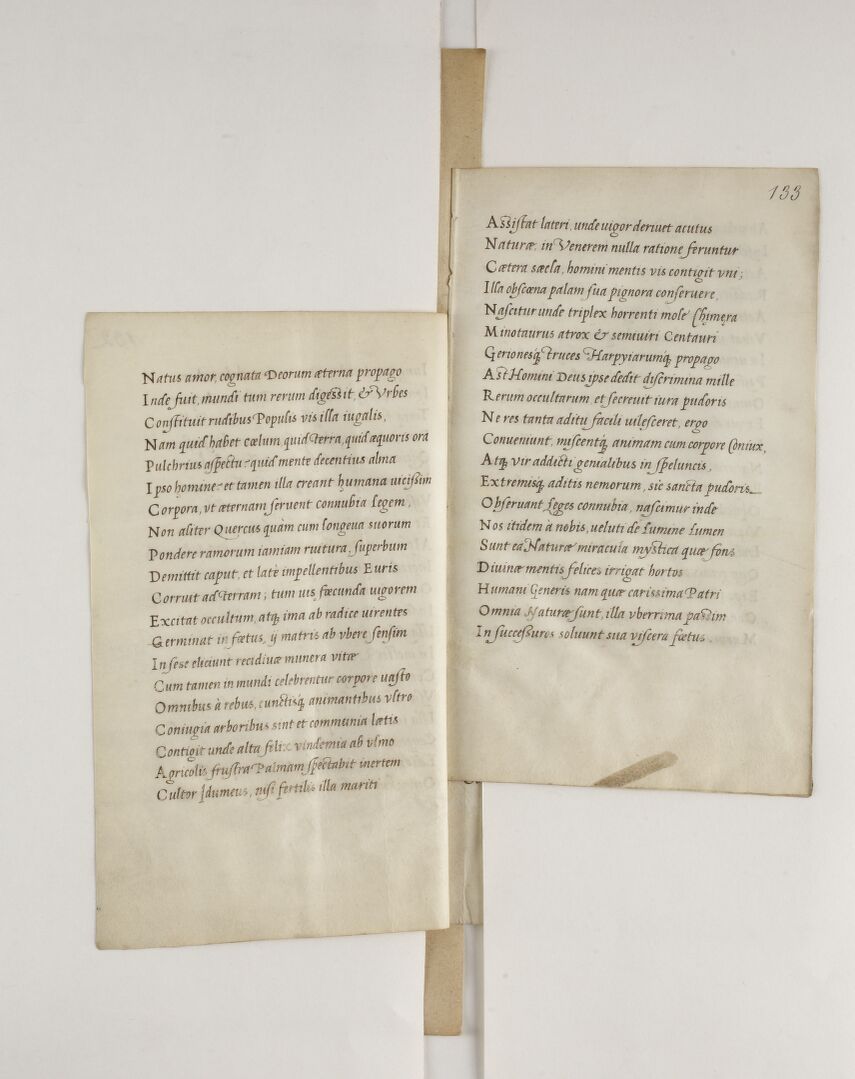 Natus amor, cognata Deorum æterna propago
Inde fuit, mundi tum rerum digessit, & Vrbes
Constituit rudibus Populis vis illa iugalis,
Nam quid habet cælum, quid terra, quid æquoris ora
Pulchrius aspectu? quid mente decentius alma
Ipso homine? et tamen illa creant humana uicissim
Corpora, vt æternam seruent connubia legem,
Non aliter Quercus quàm cum longeua suorum
Pondere ramorum iamiam ruitura, superbum
Demittit caput, et latè impellentibus Euris
Corruit ad Terram; tum uis fæcunda uigorem
Excitat occultum, atq́; ima ab radice uirentes
Germinat in fœtus, ij matris ab vbere sensim
In sese eliciunt recidiuæ munera vitæ
Cum tamen in mundi celebrentur corpore uasto
Omnibus à rebus, cunctisq́; animantibus vltro
Coniugia arboribus sint et communia lætis
Contigit unde alta felix vindemia ab vlmo
Agricolis frustra Palmam spectabit inertem
Cultor Idumeus, nisi fertilis illa mariti
133
Assistat lateri, unde uigor deriuet acutus
Naturæ, in Venerem nulla ratione feruntur
Cætera sæcla, homini mentis vis contigit vni;
Illa obscæna palam sua pignora conseruere,
Nascitur unde triplex horrenti mole Chimęra
Minotaurus atrox & semiuiri Centauri
Gerionesq́; truces Harpyiarumq́; propago
Ast Homini Deus ipse dedit discrimina mille
Rerum occultarum, et secreuit iura pudoris
Ne res tanta aditu facili uilesceret, ergo
Conueniunt, miscentq́; animam cum corpore Coniux,
Atq́; vir addicti genialibus in speluncis,
Extremisq́; aditis nemorum, sic sancta pudoris
Obseruant leges connubia, nascimur inde
Nos itidem à nobis, ueluti de lumine lumen
Sunt ea Naturæ miracula mystica quæ fons
Diuinæ mentis felices irrigat hortos
Humani Generis nam quæ carissima Patri
Omnia Naturæ sunt, illa vberrima passim
In successuros soluunt sua viscera fœtus.